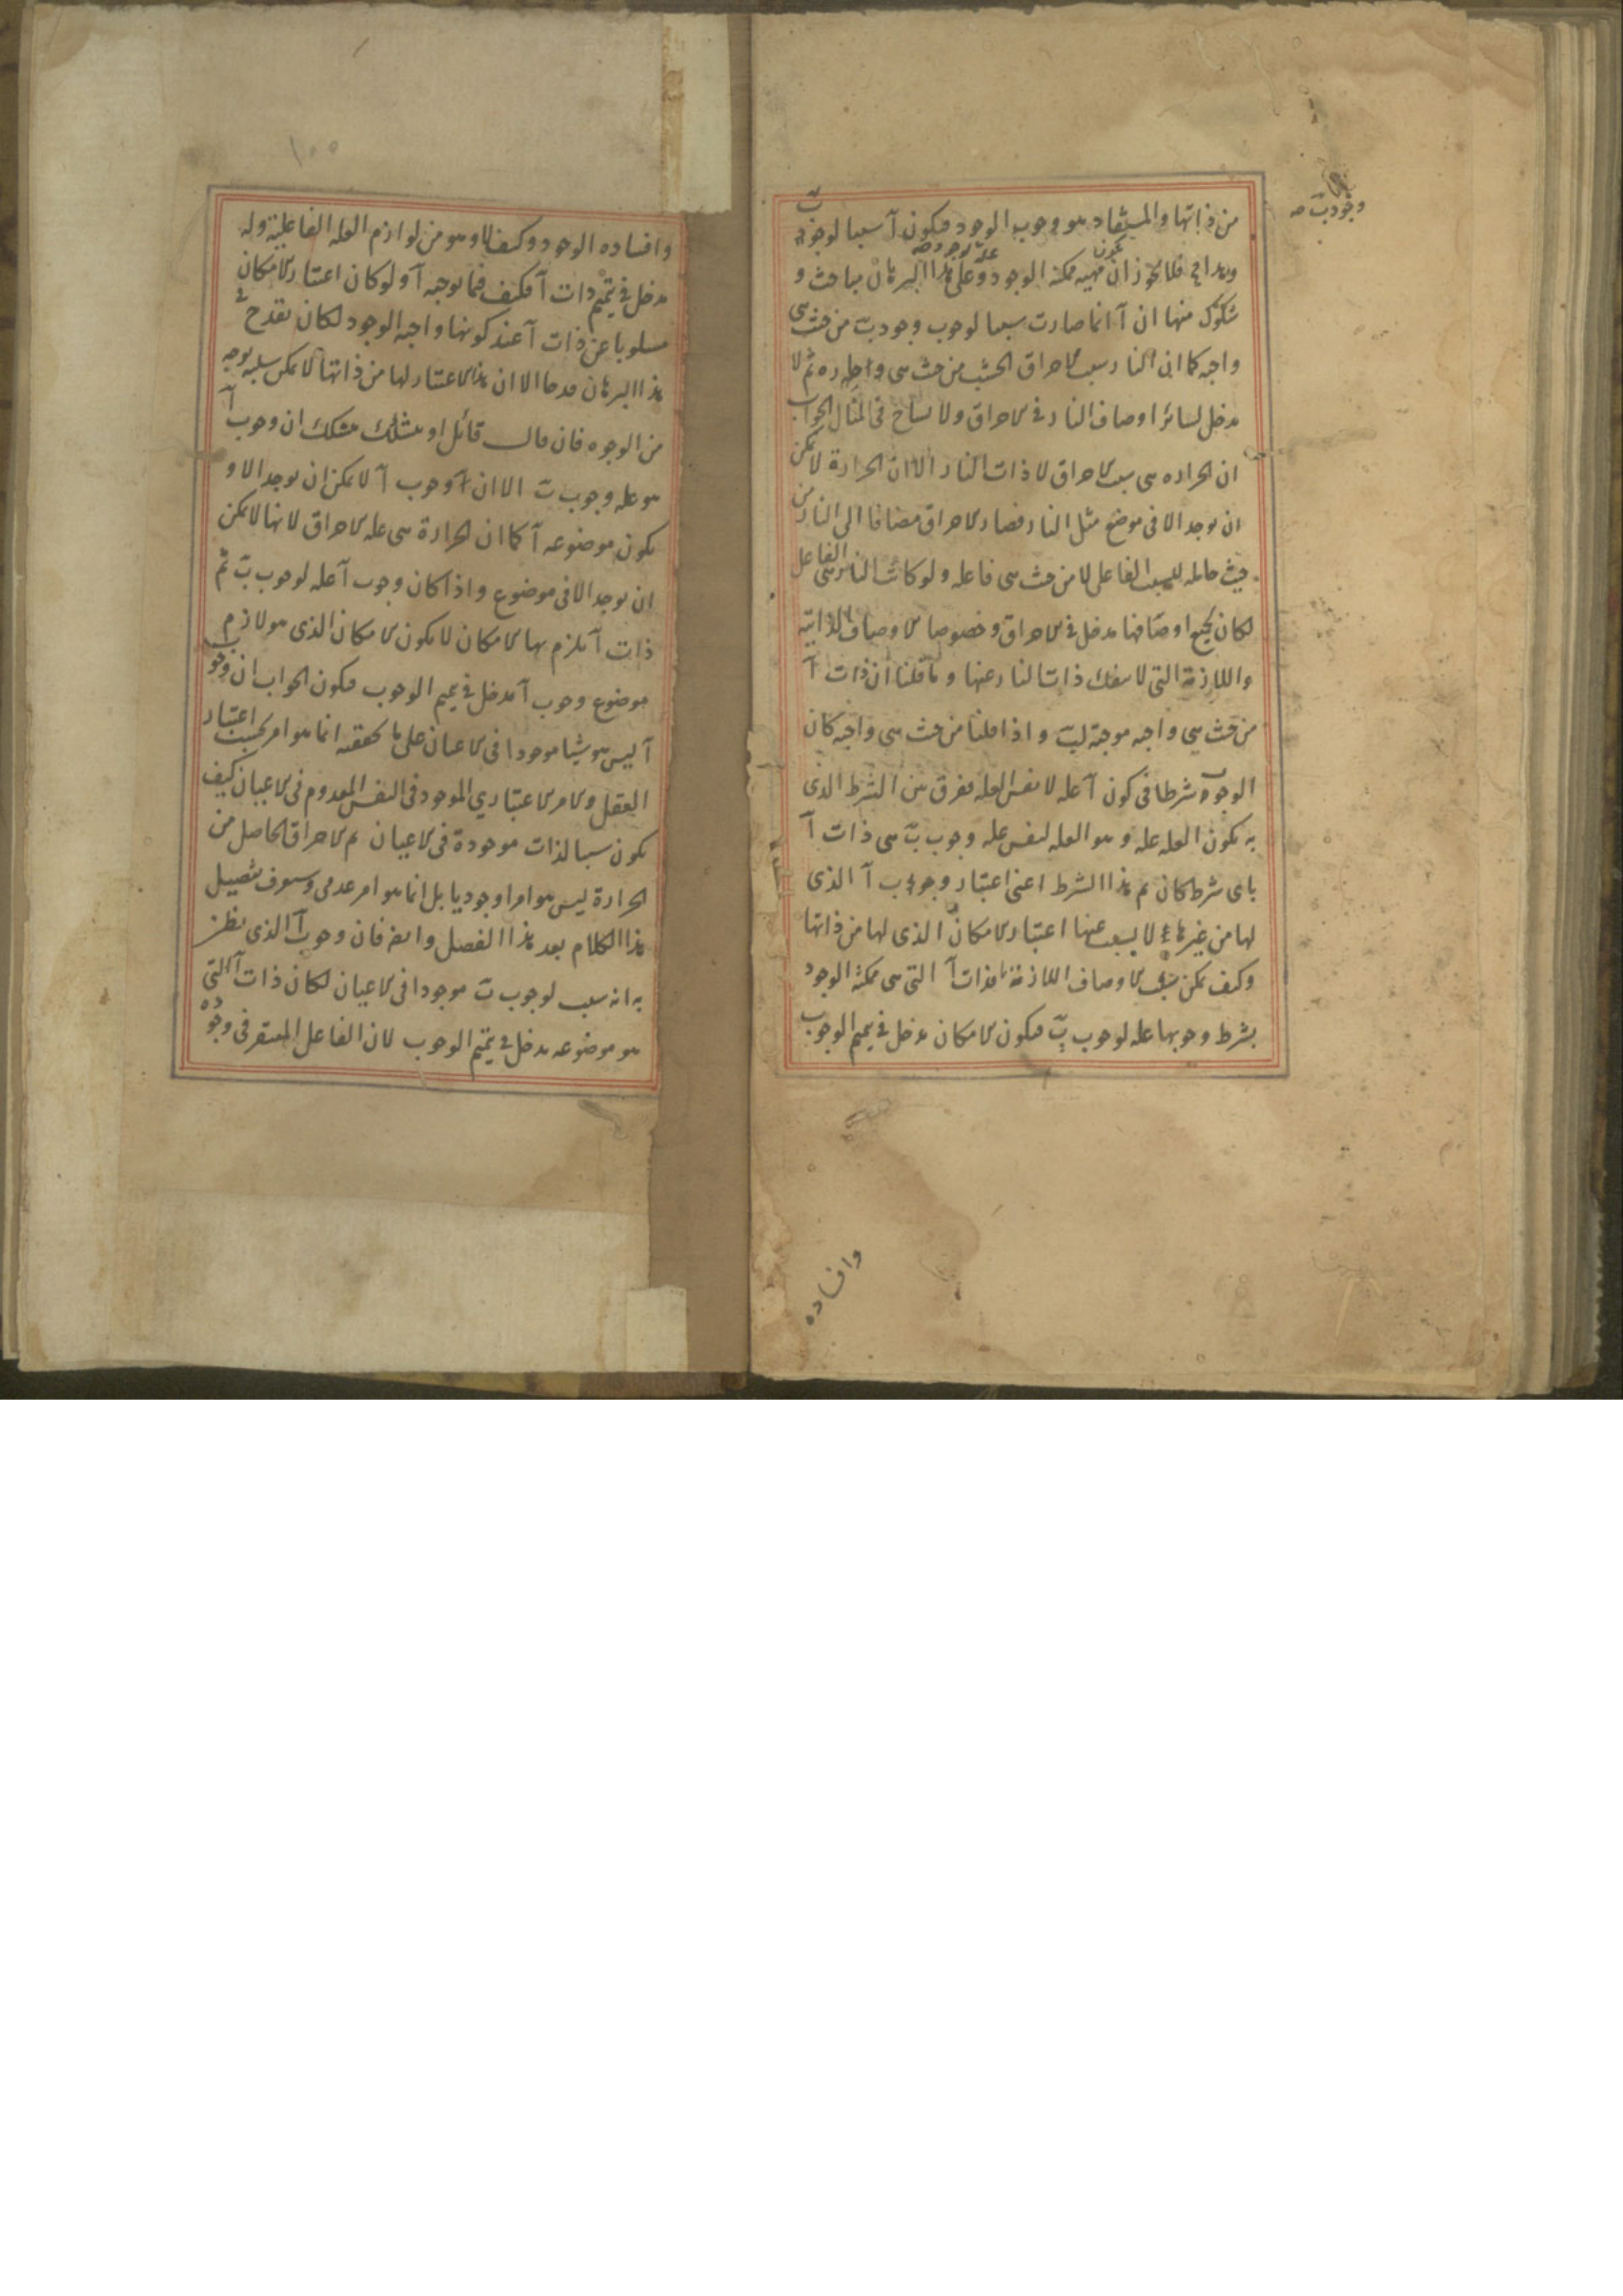 من ذاتها والمستفاد هو وجوب الوجود فيكون آ سببا لوجوب بَ
وجود بَ صح
فلا يجوز ان يكون مهيه ممكنة الوجود علة لوجود وعلى هذا البرهان مباحث و
شكوك منها ان آ انما صارت سببا لوجوب وجود بَ من حيث هى
واجبه كما ان النار سبب لاحراق الخشب من حيث هى حاره ثم لا
مدخل لسائر اوصاف النار فى الاحراق ولا فى المثال الجواب
ان الحراره هى سبب الاحراق لا ذات النار الا ان الحرارة لا يمكن
ان يوجد الا فى موضع مثل النار فصار الاحراق مضافا الى النار من
حيث حامله للسبب الفاعل لا من حيث هى فاعله ولو كانت النار هى الفاعل
لكان لجميع اوصافها مدخل فى الاحراق وخصوصا الاوصاف الذاتية
واللازمة التى لا ينفك ذات النار عنها وما قلنا ان ذات آ
من حيث هى واجبه موجبة لبَ واذا قلنا من حيث هى واجبه كان
الوجوب شرطا فى كون آ علة لا نفس العله ففرق بين الشرط الذى
به يكون العله علة وهو العله لنفس علة وجوب بَ هى ذات آ
باى شرط كان ثم هذا الشرط اعنى اعتبار وجوب آ الذى
لها من غيرها لا يسلب عنها اعتبار الامكان الذى لها من ذاتها
وكيف يمكن سلب الاوصاف اللازمة فذات آ التى هى ممكنة الوجود
بشرط وجوبها علة لوجوب بَ فيكون للامكان مدخل فى تتميم الوجوب
وافساده
١٠٠
وافساده الوجود وكيف لا وهو من لوازم العله الفاعلية وله
مدخل فى تتميم ذات آ فكيف فيما يوجبه آ ولو كان اعتبار الامكان
مسلوبا عن ذات آ عند كونها واجبه الوجود لكان يقدح فى
هذا البرهان قدحا الا ان هذا الاعتبار لها من ذاتها لا يمكن سلبه بوجه
من الوجوه فان قال قائل او تشكك متشكك ان وجوب آ
هو علة وجوب بَ الا ان وجوب آ لا يمكن ان يوجد الا و
يكون موضوعه آ كما ان الحرارة هى علة الاحراق لانها لا يمكن
ان يوجد الا فى موضوع واذا كان وجوب آ علة لوجوب بَ ثم
ذات آ يلزم بها الامكان لا يكون للامكان الذى هو لازم
موضوع وجوب آ مدخل فى تتميم الوجوب فيكون الجواب ان وجوب
آ ليس هو شيا موجودا فى الاعيان على ما تحققه انما هو امر بحسب اعتبار
العقل والامر الاعتبارى الموجود فى النفس المعدوم فى الاعيان كيف
يكون سببا لذات موجودة فى الاعيان ثم الاحراق الحاصل من
الحرارة ليس هو امرا وجوديا بل انما هو امر عدمى وسوف تفصيل
هذا الكلام بعد هذا الفصل وايضا فان وجوب آ الذى يظن
به انه سبب لوجوب بَ موجودا فى الاعيان لكان ذات آ التى
هو موضوعه مدخل فى تتميم الوجوب لان الفاعل المفتقر فى وجوده